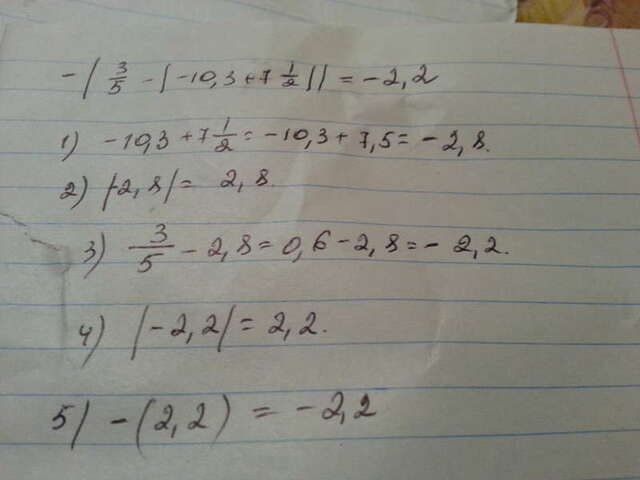 -| 3/5 - | -10,3 + 7 1/2 || = -2,2
1) -10,3 + 7 1/2 = -10,3 + 7,5 = -2,8.
2) |-2,8| = 2,8.
3) 3/5 - 2,8 = 0,6 - 2,8 = - 2,2.
4) |-2,2| = 2,2.
5) -(2,2) = -2,2